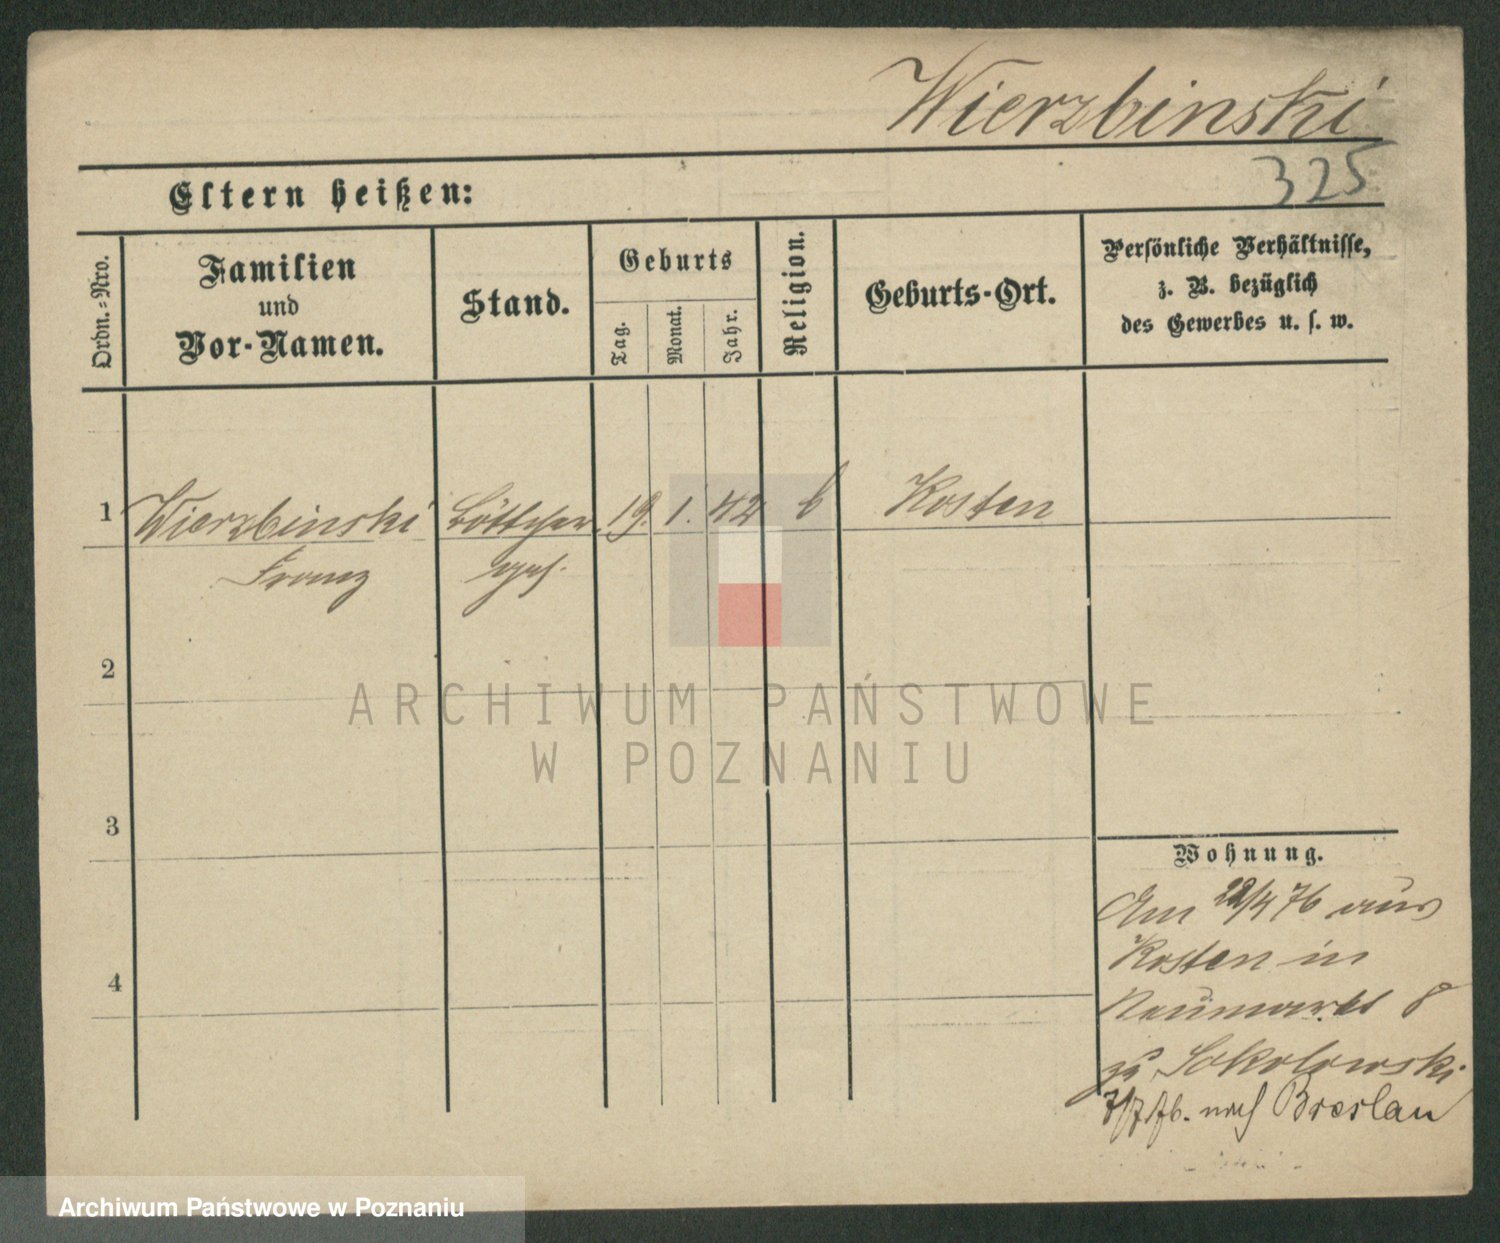 Wierzbinski
325
Eltern heißen:
Ordn.-Nro.
Familien
und
Vor-Namen.
Stand.
Geburts
Tag.
Monat.
Jahr.
Religion.
Geburts-Ort.
Persönliche Verhältnisse,
z. B. bezüglich
des Gewerbes u. s. w.
1 Wierzbinski Böttcher 19. 1. 42 k Kosten
Franz ges.
2
ARCHIWUM PAŃSTWOWE
W POZNANIU
3
Wohnung.
Am 22/4 76 aus
Kosten in
4
Neumarkt 8
zu Sokolowski
7/7 76. nach Breslau
Archiwum Państwowe w Poznaniu